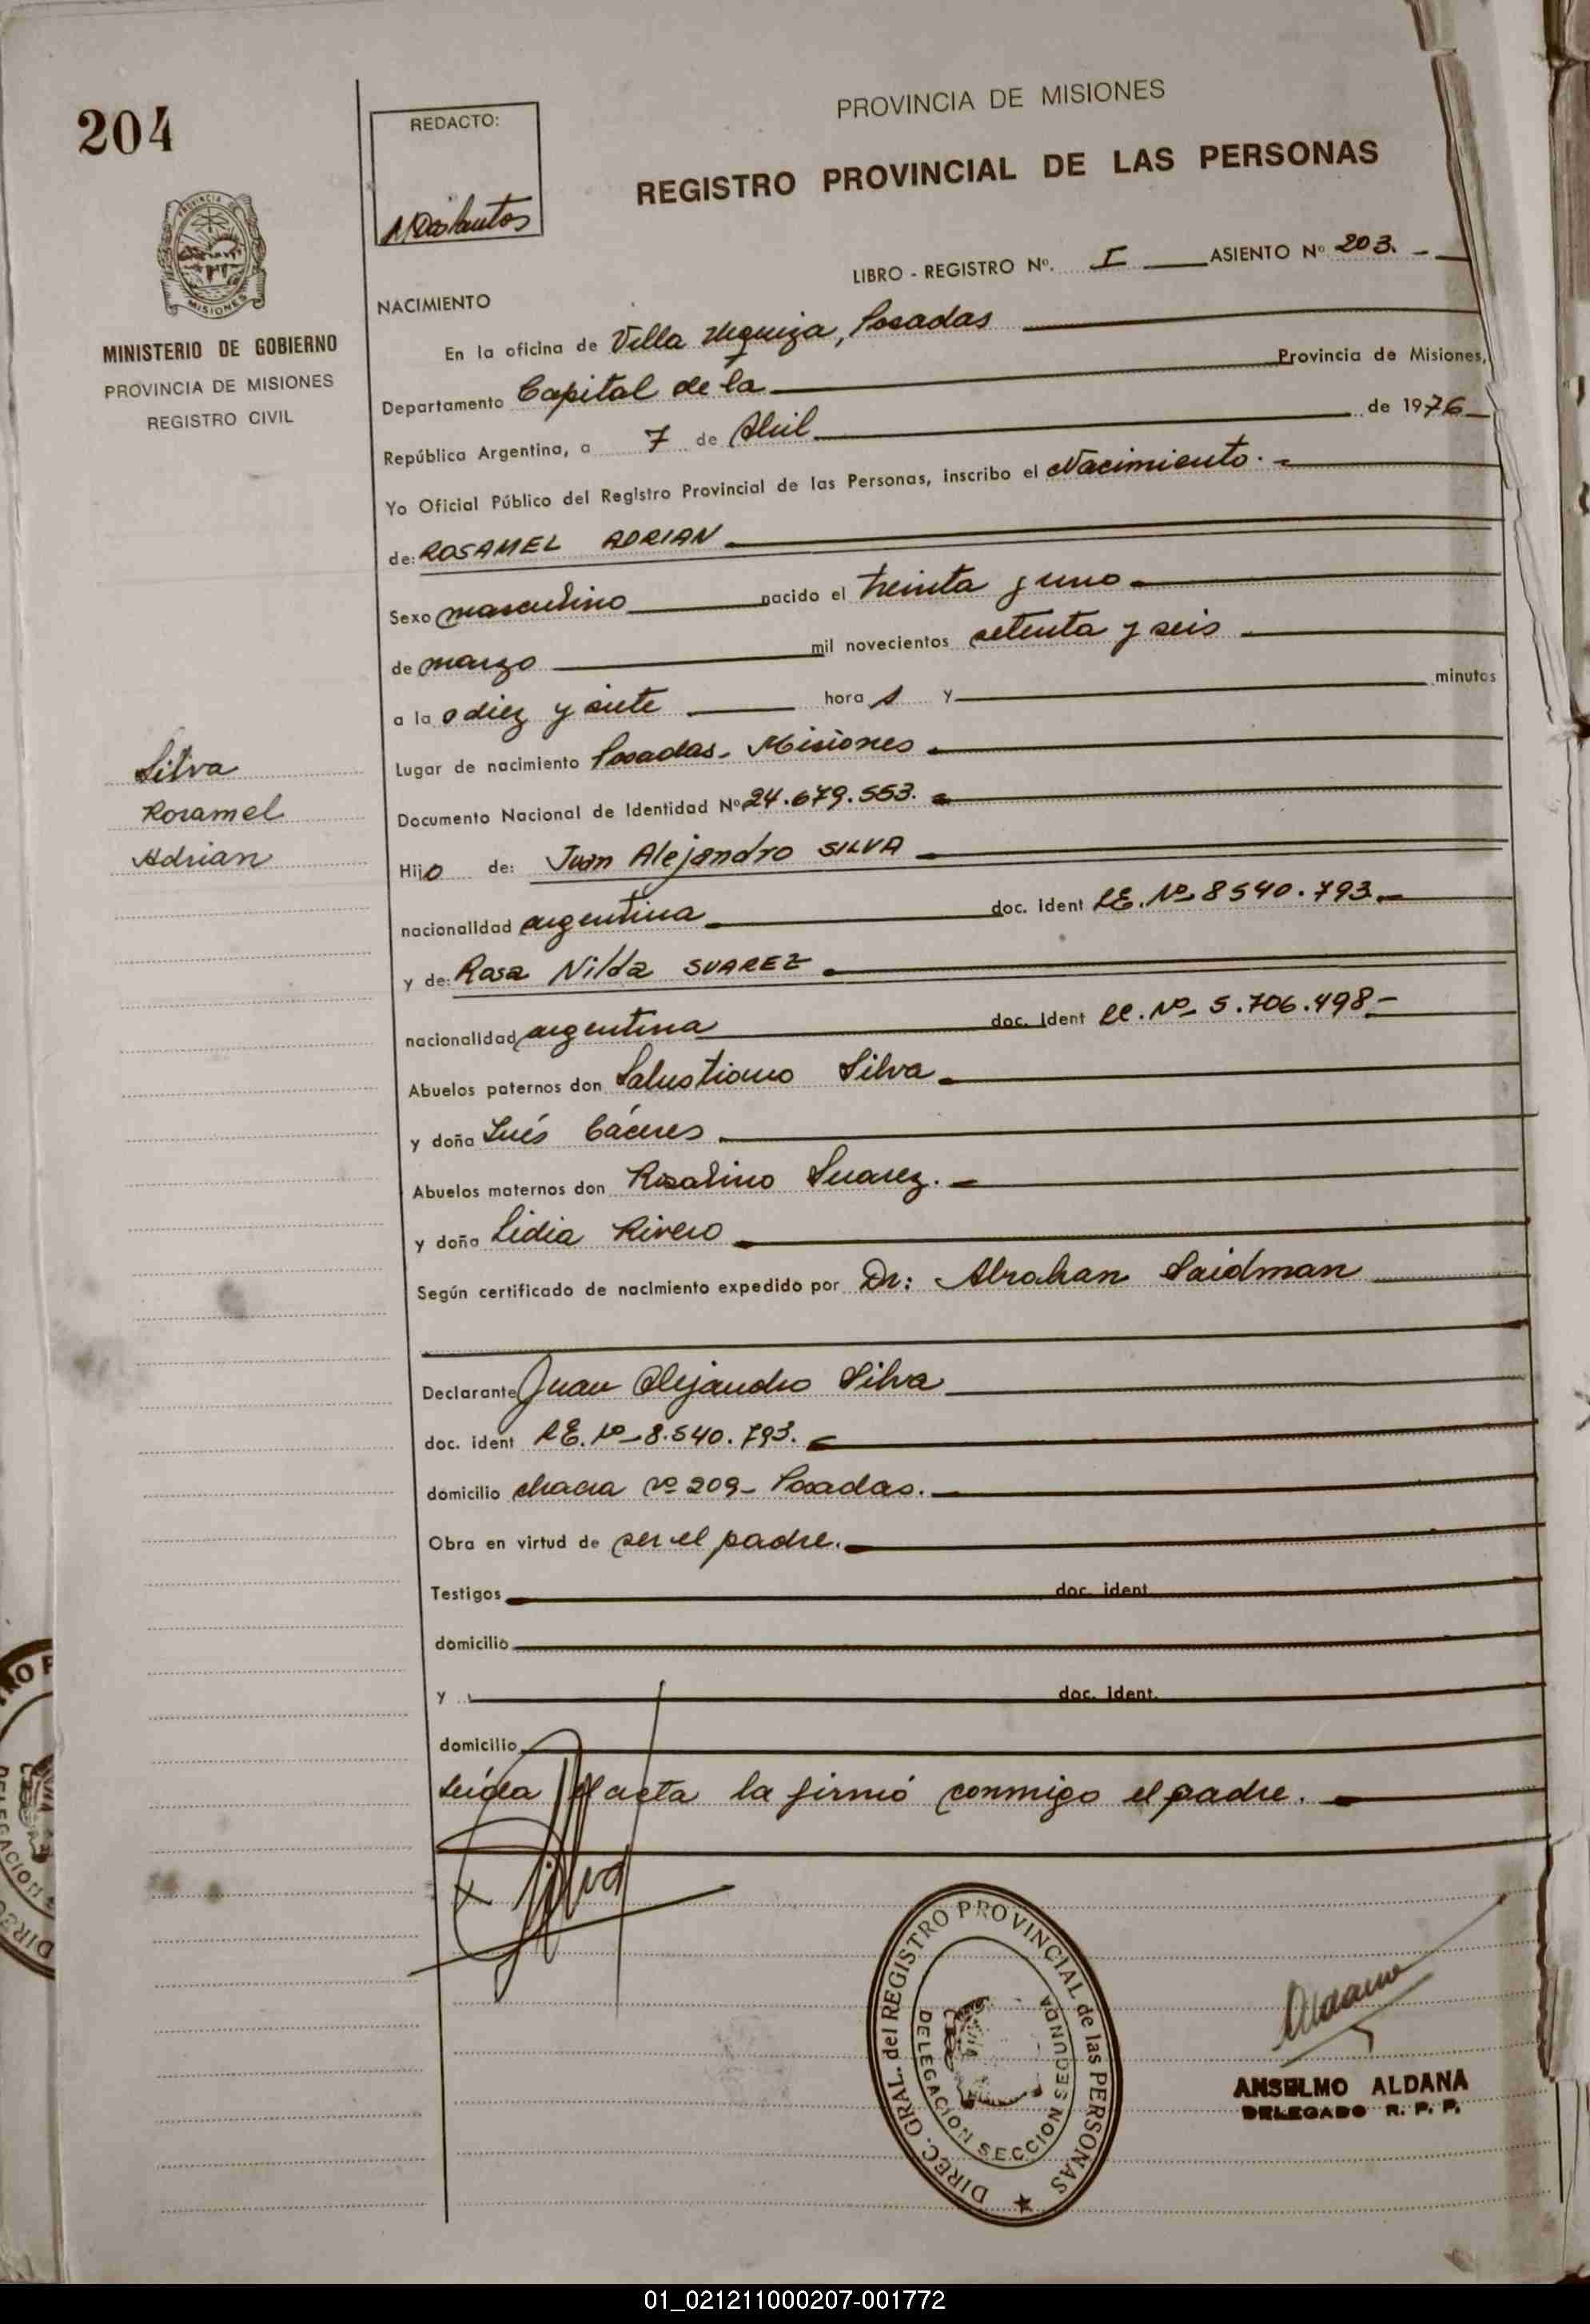 204
REDACTO:
PROVINCIA DE MISIONES
REGISTRO PROVINCIAL DE LAS PERSONAS
PROVINCIA DE
MISIONES
MINISTERIO DE GOBIERNO
PROVINCIA DE MISIONES
REGISTRO CIVIL
LIBRO - REGISTRO Nº. I ASIENTO Nº 203.-
NACIMIENTO
En la oficina de Villa Urquiza, Posadas
Departamento Capital de la Provincia de Misiones,
República Argentina, a 7 de Abril de 1976
Yo Oficial Público del Registro Provincial de las Personas, inscribo el Nacimiento.-
de: ROSAMEL ADRIAN
Sexo masculino nacido el treinta y uno
de marzo mil novecientos setenta y seis
a la s diez y siete hora s y minutos
Lugar de nacimiento Posadas- Misiones
Documento Nacional de Identidad Nº 24.679.553.
Silva
Rosamel
Adrian
Hijo de: Juan Alejandro SILVA
nacionalidad argentina doc. ident LE. Nº 8540.793.
y de: Rosa Nilda SUAREZ
nacionalidad argentina doc. ident LC. Nº 5.706.498-
Abuelos paternos don Salustiano Silva
y doña Inés Cáceres
Abuelos maternos don Rosalino Suarez.
y doña Lidia Rivero
Según certificado de nacimiento expedido por Dr: Abrahan Saidman
Declarante Juan Alejandro Silva
doc. ident LE. Nº 8.540.793.
domicilio chacra nº 209- Posadas.
Obra en virtud de ser el padre.
Testigos doc. ident
domicilio
y doc. ident.
domicilio
Leída el acta la firmó conmigo el padre.
Silva
DIREC. GRAL. del REGISTRO PROVINCIAL de las PERSONAS
DELEGACION SECCION SEGUNDA
Aldana
ANSELMO ALDANA
DELEGADO R. P. P.
01_021211000207-001772